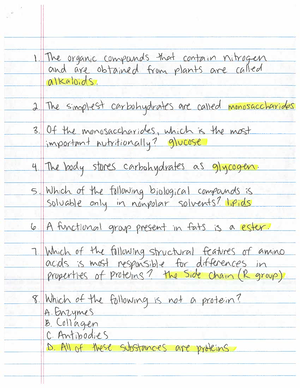 1. The organic compounds that contain nitrogen
and are obtained from plants are called
alkaloids
2. The simplest carbohydrates are called monosaccharides
3. Of the monosaccharides, which is the most
important nutritionally? glucose
4. The body stores carbohydrates as glycogen
5. Which of the following biological compounds is
solvable only in nonpolar solvents? lipids
6. A functional group present in fats is a ester.
7. Which of the following structural features of amino
acids is most responsible for differences in
properties of proteins? the side chain (R group)
8. Which of the following is not a protein?
A. Enzymes
B. Collagen
C. Antibodies
D. All of these substances are proteins